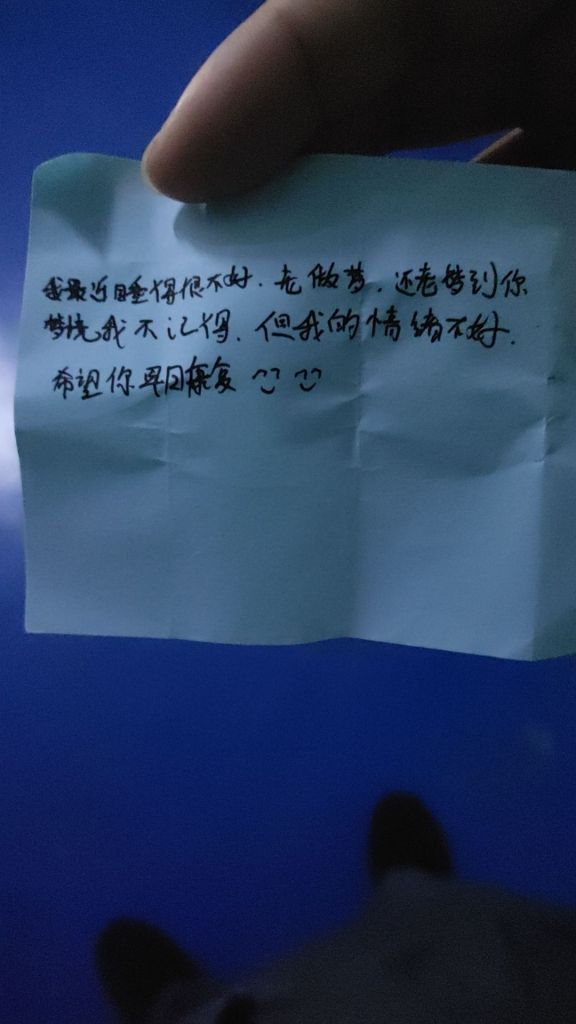 我最近睡得很不好.老做梦.还老梦到你
梦境我不记得.但我的情绪不好.
希望你早日康复